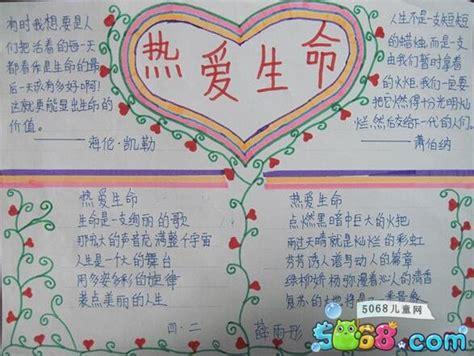 热爱生命
有时我想要是人
们把活着的每一天
都看作是生命的最
后一天该有多好啊!
这就更能显出生命的
价值。
——海伦·凯勒
人生不是一支短短
的蜡烛,而是一支
由我们暂时拿着
的火炬,我们一定要
把它燃得十分光明灿
烂,然后交给下一代的人们。
——萧伯纳
热爱生命
生命是一支绚丽的歌
那宏大的声音充满整个宇宙
人生是一个大的舞台
用多姿多彩的旋律
装点美丽的人生
四·二
热爱生命
点燃黑暗中巨大的火把
雨过天晴就是灿烂的彩虹
芬芳诱人谱写动人的篇章
绿柳娇杨弥漫着沁人的清香
复苏的大地将是一
薛雨彤
5068儿童网
5068.com